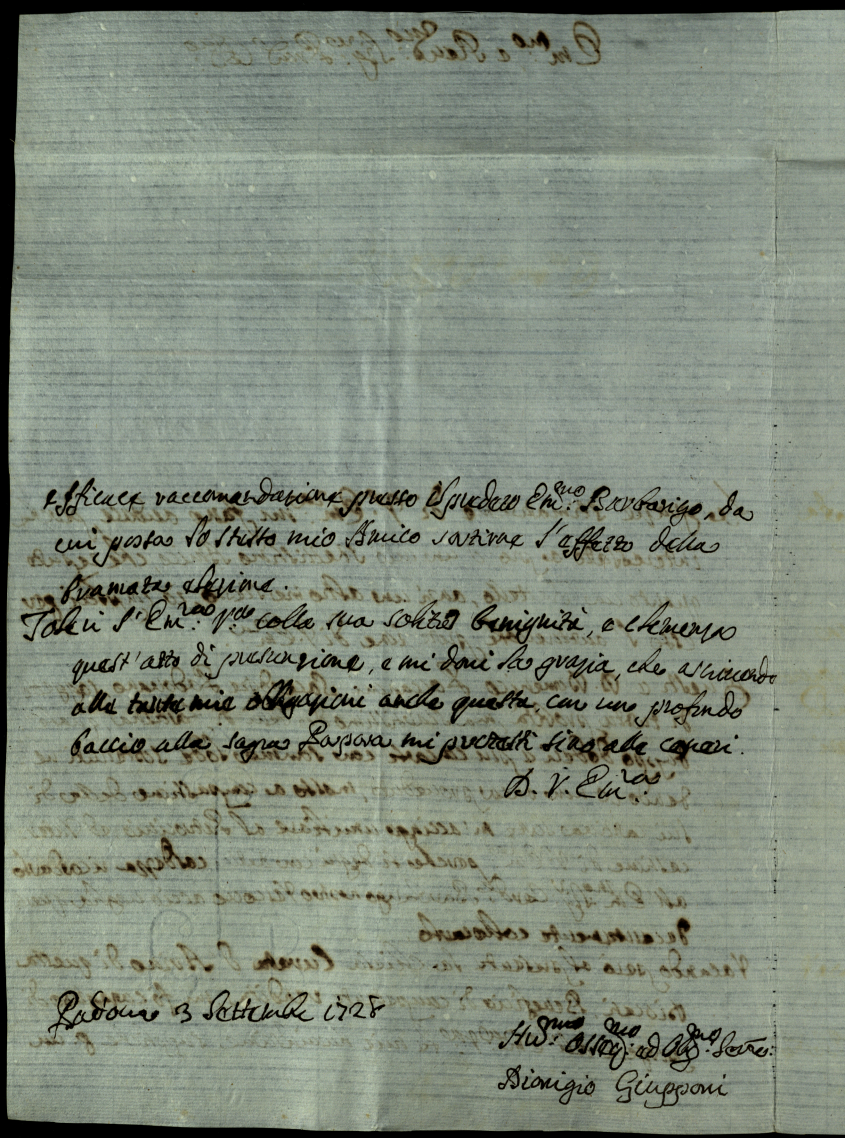 efficace raccomandazione presso il predetto Em.mo Barbarigo, da
cui possa lo stesso mio Amico sortirne l'effetto della
bramata elezione.
Toleri l'Em.za V.ra colla sua solita benignità, e clemenza
quest'atto di presunzione, e mi doni la grazia, che ascrivendo
alle tante mie obligazioni anche questa, con un profondo
baccio alla sagra Porpora mi protesti sino alle ceneri.
D. V. Em.za
Padova 3 Settembre 1728
Hum.mo Osseq.mo ed Obl.mo Serre:
Dionigio Giupponi